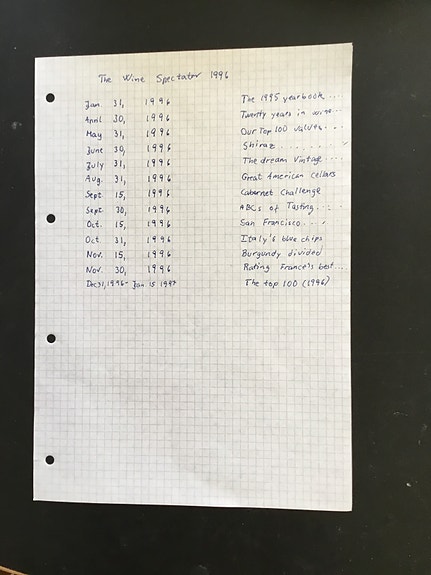 The Wine Spectator 1996
Jan. 31, 1996 The 1995 yearbook....
April 30, 1996 Twenty years in wine...
May 31, 1996 Our Top 100 values....
June 30, 1996 Shiraz........
July 31, 1996 The dream Vintage....
Aug. 31, 1996 Great American Cellars
Sept. 15, 1996 Cabernet Challenge
Sept. 30, 1996 ABCs of Tasting....
Oct. 15, 1996 San Francisco....
Oct. 31, 1996 Italy's blue chips
Nov. 15, 1996 Burgundy divided
Nov. 30, 1996 Rating France's best...
Dec 31, 1996- Jan 15 1997 The top 100 (1996)